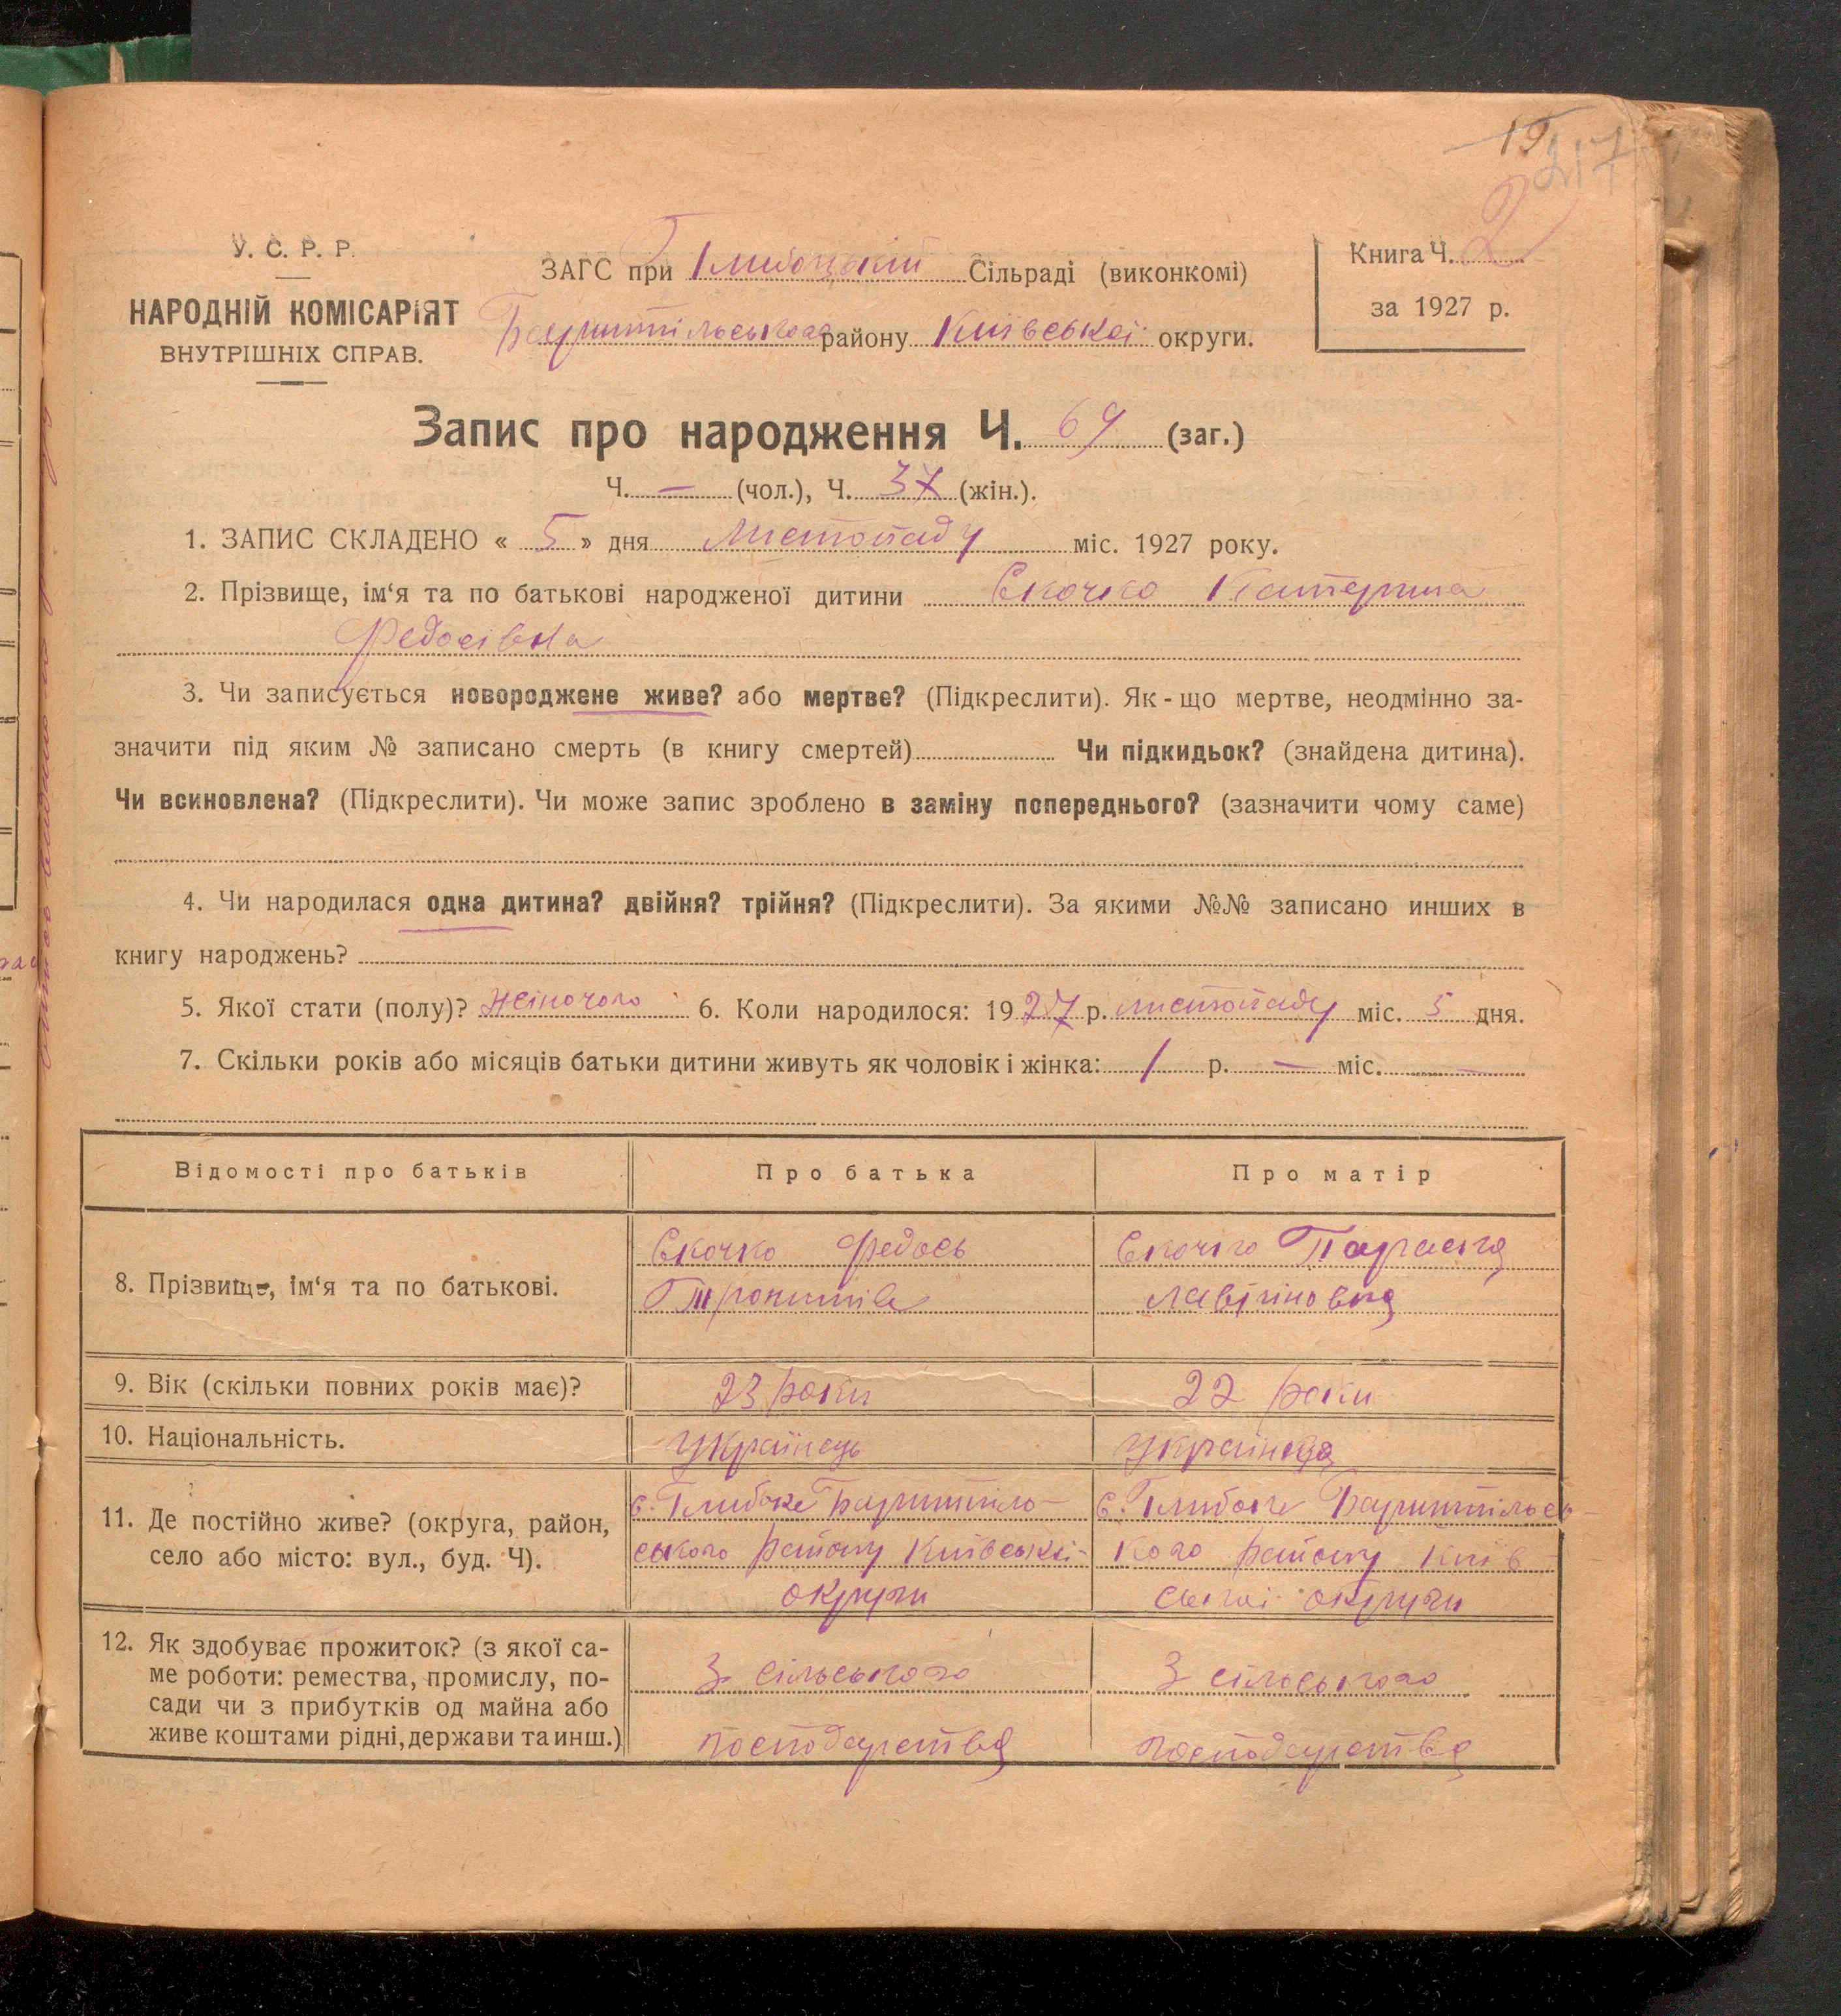 19
217
У. С. Р. Р.
НАРОДНІЙ КОМІСАРІЯТ
ВНУТРІШНІХ СПРАВ.
ЗАГС при Глибоцький Сільраді (виконкомі)
Баришпільського району Київської округи.
Книга Ч. 2
за 1927 р.
Запис про народження Ч. 69 (заг.)
Ч. — (чол.), Ч. 37 (жін.).
1. ЗАПИС СКЛАДЕНО « 5 » дня Листопаду міс. 1927 року.
2. Прізвище, ім‘я та по батькові народженої дитини Скочко Катерина
Федосівна
3. Чи записується новороджене живе? або мертве? (Підкреслити). Як-що мертве, неодмінно за-
значити під яким № записано смерть (в книгу смертей) Чи підкидьок? (знайдена дитина).
Чи всиновлена? (Підкреслити). Чи може запис зроблено в заміну попереднього? (зазначити чому саме)
4. Чи народилася одна дитина? двійня? трійня? (Підкреслити). За якими №№ записано инших в
книгу народжень?
5. Якої стати (полу)? жіночого 6. Коли народилося: 1927 р. листопаду міс. 5 дня.
7. Скільки років або місяців батьки дитини живуть як чоловік і жінка: 1 р. — міс. —
Відомості про батьків Про батька Про матір
8. Прізвище, ім‘я та по батькові.
Скочко Федось
Скочко Параска
9. Вік (скільки повних років має)? 23 роки 22 роки
10. Національність. Українець Українка
11. Де постійно живе? (округа, район,
село або місто: вул., буд. Ч).
с. Глибоке Баришпіль-
ського району Київської
округи
с. Глибоке Баришпільсь-
кого району Київ
ської округи
12. Як здобуває прожиток? (з якої са-
ме роботи: ремества, промислу, по-
сади чи з прибутків од майна або
живе коштами рідні, держави та инш.)
З сільського
господарства
З сільського
господарства